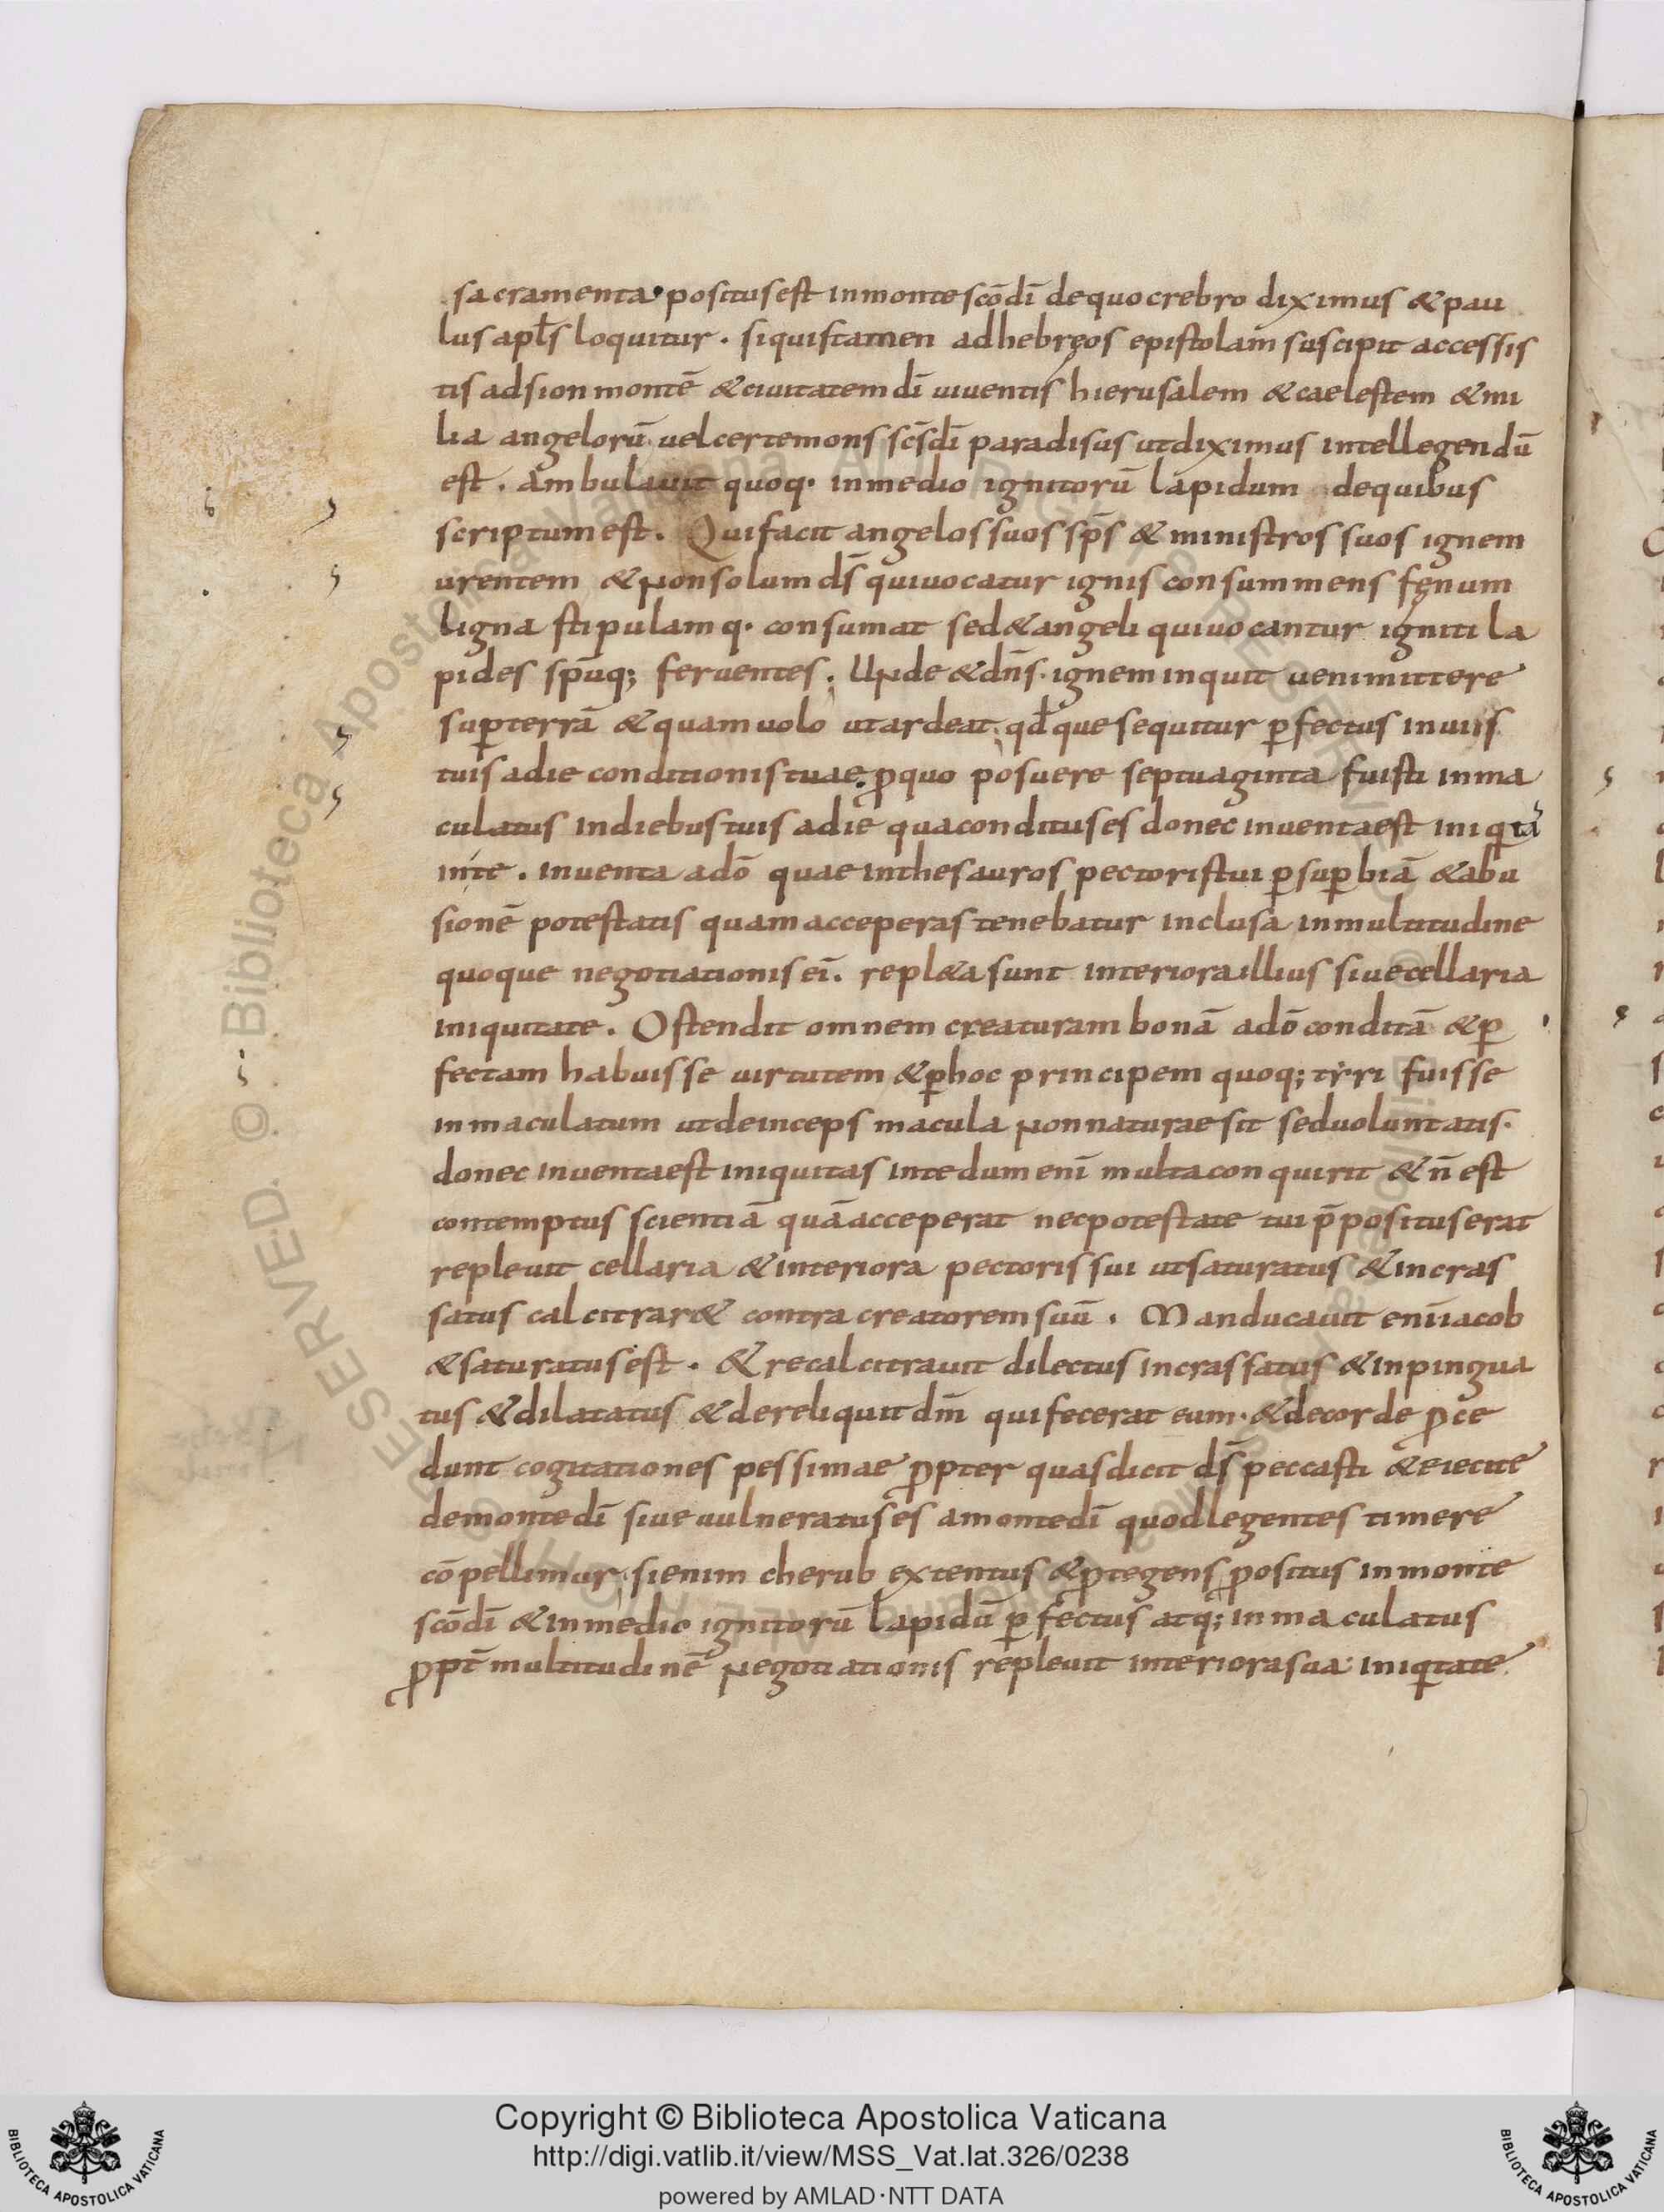 sacramenta. positus est in monte scō dī de quo crebro diximus & pau
lus apłs loquitur. si quis tamen ad hebręos epistolam suscipit accessis
tis ad sion montē & ciuitatem dī uiuentis hierusalem & caelestem & mi
lia angelorū uel certe mons scs̄ dī paradisus ut diximus intellegendū
est. Ambulauit quoq. in medio ignitorū lapidum de quibus
scriptum est. Qui facit angelos suos sps̄ & ministros suos ignem
urentem & non solum ds̄ qui uocatur ignis consummens fęnum
ligna stipulamq. consumat sed & angeli qui uocantur igniti la
pides spūq; feruentes. Unde & dn̄s. ignem inquit ueni mittere
sup̱ terrā & quam uolo ut ardeat. qđque sequitur p̱fectus in uiis
tuis a die conditionis tuae. ꝓ quo posuere septuaginta fuisti inma
culatus in diebus tuis a die qua conditus es donec inuenta est iniqitā
in te. inuenta a dō quae in thesauros pectoris tui p̱ sup̱biā & abu
sionē potestatis quam acceperas tenebatur inclusa in multitudine
quoque negotiationis eī. repl&a sunt interiora illius siue cellaria
iniquitate. Ostendit omnem creaturam bonā a dō conditā & p̱
fectam habuisse uirtutem & p̱ hoc principem quoq; tẏri fuisse
inmaculatum ut deinceps macula non naturae sit sed uoluntatis.
donec inuenta est iniquitas in te dum enī multa conquirit & n̄ est
contemptus scientiā quā acceperat nec potestate tui p̄positus erat
repleuit cellaria & interiora pectoris sui ut saturatus & incras
satus calcitrar& contra creatorem suū. Manducauit enī iacob
& saturatus est. & recalcitrauit dilectus incrassatus & inpingua
tus & dilatatus & dereliquit dm̄ qui fecerat eum. & de corde ꝓce
dunt cogitationes pessimae ꝓpter quas dicit ds̄ peccasti & eieci te
de monte dī siue uulneratus es a monte dī quod legentes timere
cōpellimur. si enim cherub extentus & ꝓtegens positus in monte
scō dī & in medio ignitorū lapidū p̱fectus atq; inmaculatus
ꝓpt̄ multitudinē negotiationis repleuit interiora sua iniqitate
Copyright © Biblioteca Apostolica Vaticana
http://digi.vatlib.it/view/MSS_Vat.lat.326/0238
powered by AMLAD·NTT DATA
BIBLIOTECA APOSTOLICA VATICANA
BIBLIOTECA APOSTOLICA VATICANA